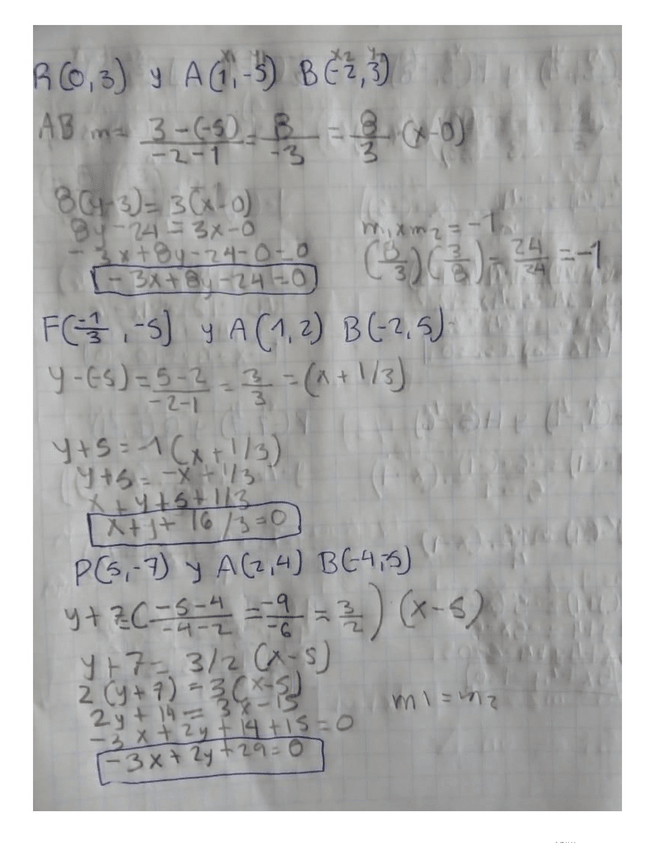 R(0,3) y A(1,-5) B(-2,3)
x1 y1 x2 y2
AB m= 3-(-5)/-2-1 = 8/-3 = 8/3 (x-0)
8(y-3)= 3(x-0)
8y-24=3x-0
-3x+8y-24-0=0
-3x+8y-24=0
m1xm2=-1
(8/3)(3/8)=24/24=-1
F(-1/3,-5) y A(1,2) B(-2,5)
y-(-5)=5-2/-2-1=3/3=(x+1/3)
y+5=-1(x+1/3)
y+5=-x+1/3
x+y+5+1/3
x+y+16/3=0
P(5,-7) y A(2,4) B(-4,-5)
y+7=(-5-4/-4-2=-9/-6=3/2)(x-5)
y+7=3/2(x-5)
2(y+7)=3(x-5)
2y+14=3x-15
-3x+2y+14+15=0
-3x+2y+29=0
m1=m2